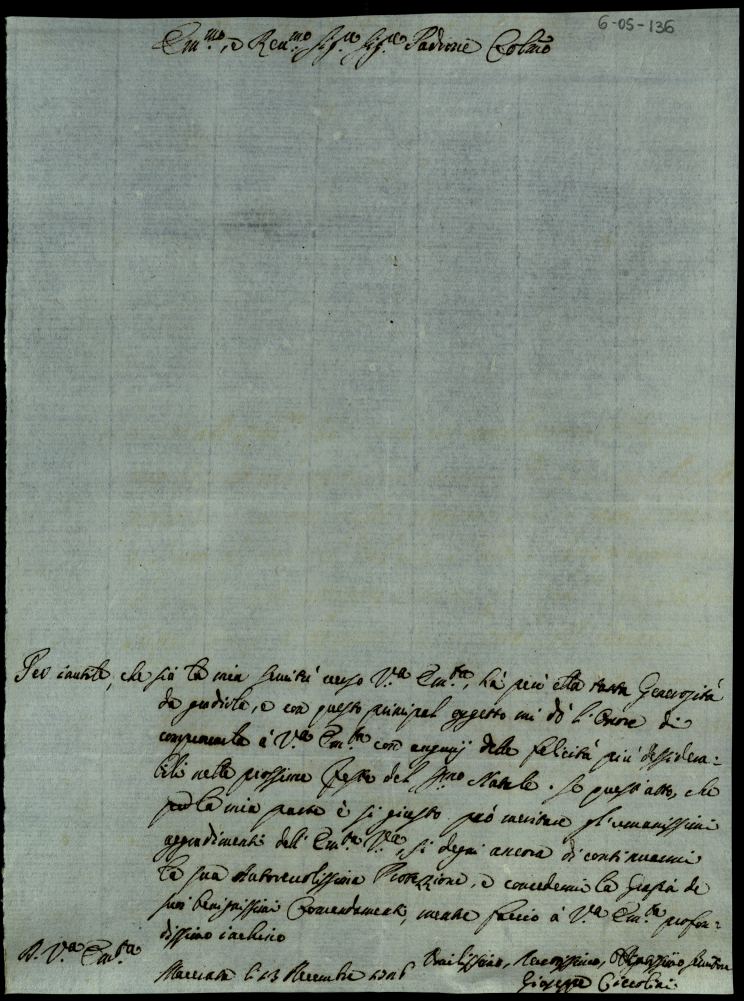 6-05-136
Em.mo, e Reu.mo Sig.r Sig.r Padrone Colmo
Per inutile, che sia la mia seruitù verso V.a Em.za, hà però ella tanta Generosità
da gradirla, e con questo principal oggetto mi dò l'Onore di
comparire à V.a Em.za con augurj delle felicità più desidera=
bili nelle prossime Feste del S.mo Natale. Se quest'atto, che
per la mia parte è si giusto può meritare gl'umanissimi
aggradimenti dell'Em.za V.a, si degni ancora di continuarmi
la sua autoreuolissima Protezzione, e concedermi la Grazia de
suoi benignissimi Comandamenti, mentre faccio à V.a Em.za profon=
dissimo inchino
D. V.a Em.za
Macerata li 13 Decembre
Vmilissimo, Deuotissimo, Obligatissimo Seruitore
Giuseppe Ciccolini